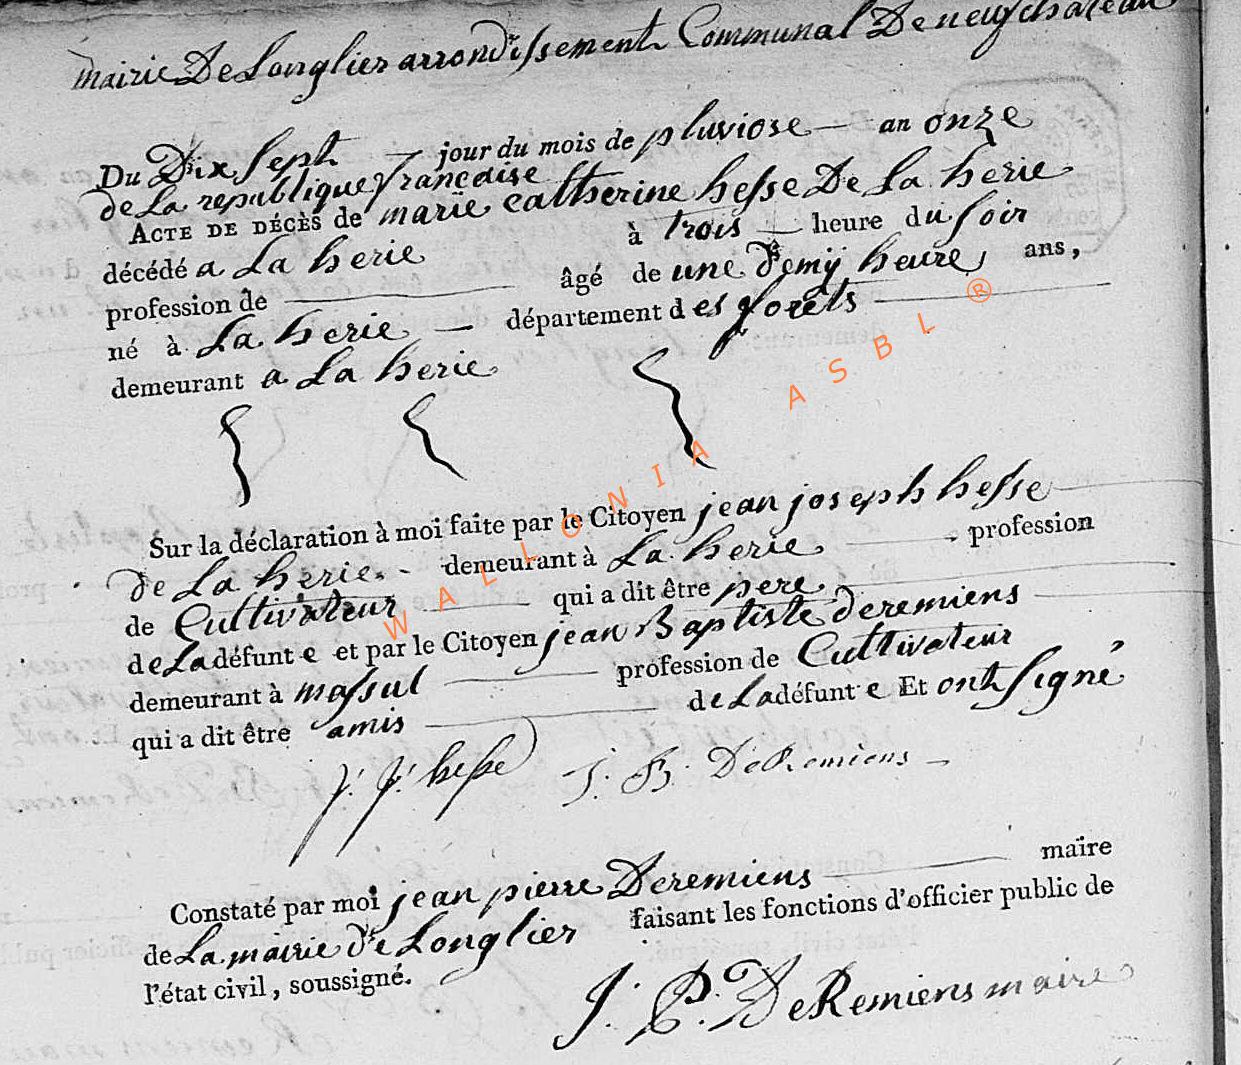 mairie De Longlier arrondissement Communal De neufchateau
Du Dix Sept jour du mois de pluviose — an onze
de La republique françaisse
ACTE DE DÉCÈS de marie catherine hesse De La herie
décédé a La herie à trois — heure du soir
profession de — âgé de une demÿ heure, ans,
né à La herie — département des forêts —
demeurant a La herie
Sur la déclaration à moi faite par le Citoyen jean joseph hesse
de La herie. - demeurant à La herie — profession
de Cultivateur — qui a dit être pere
de La défunt e et par le Citoyen jean Baptiste Deremiens
demeurant à massul — profession de Cultivateur
qui a dit être amis — de La défunt e Et ont signé
J. J. hesse J. B. DeRemiens
Constaté par moi jean pierre Deremiens — maire
de La mairie de Longlier faisant les fonctions d'officier public de
l'état civil, soussigné.
J. P. DeRemiens maire
WALLONIA ASBL ®